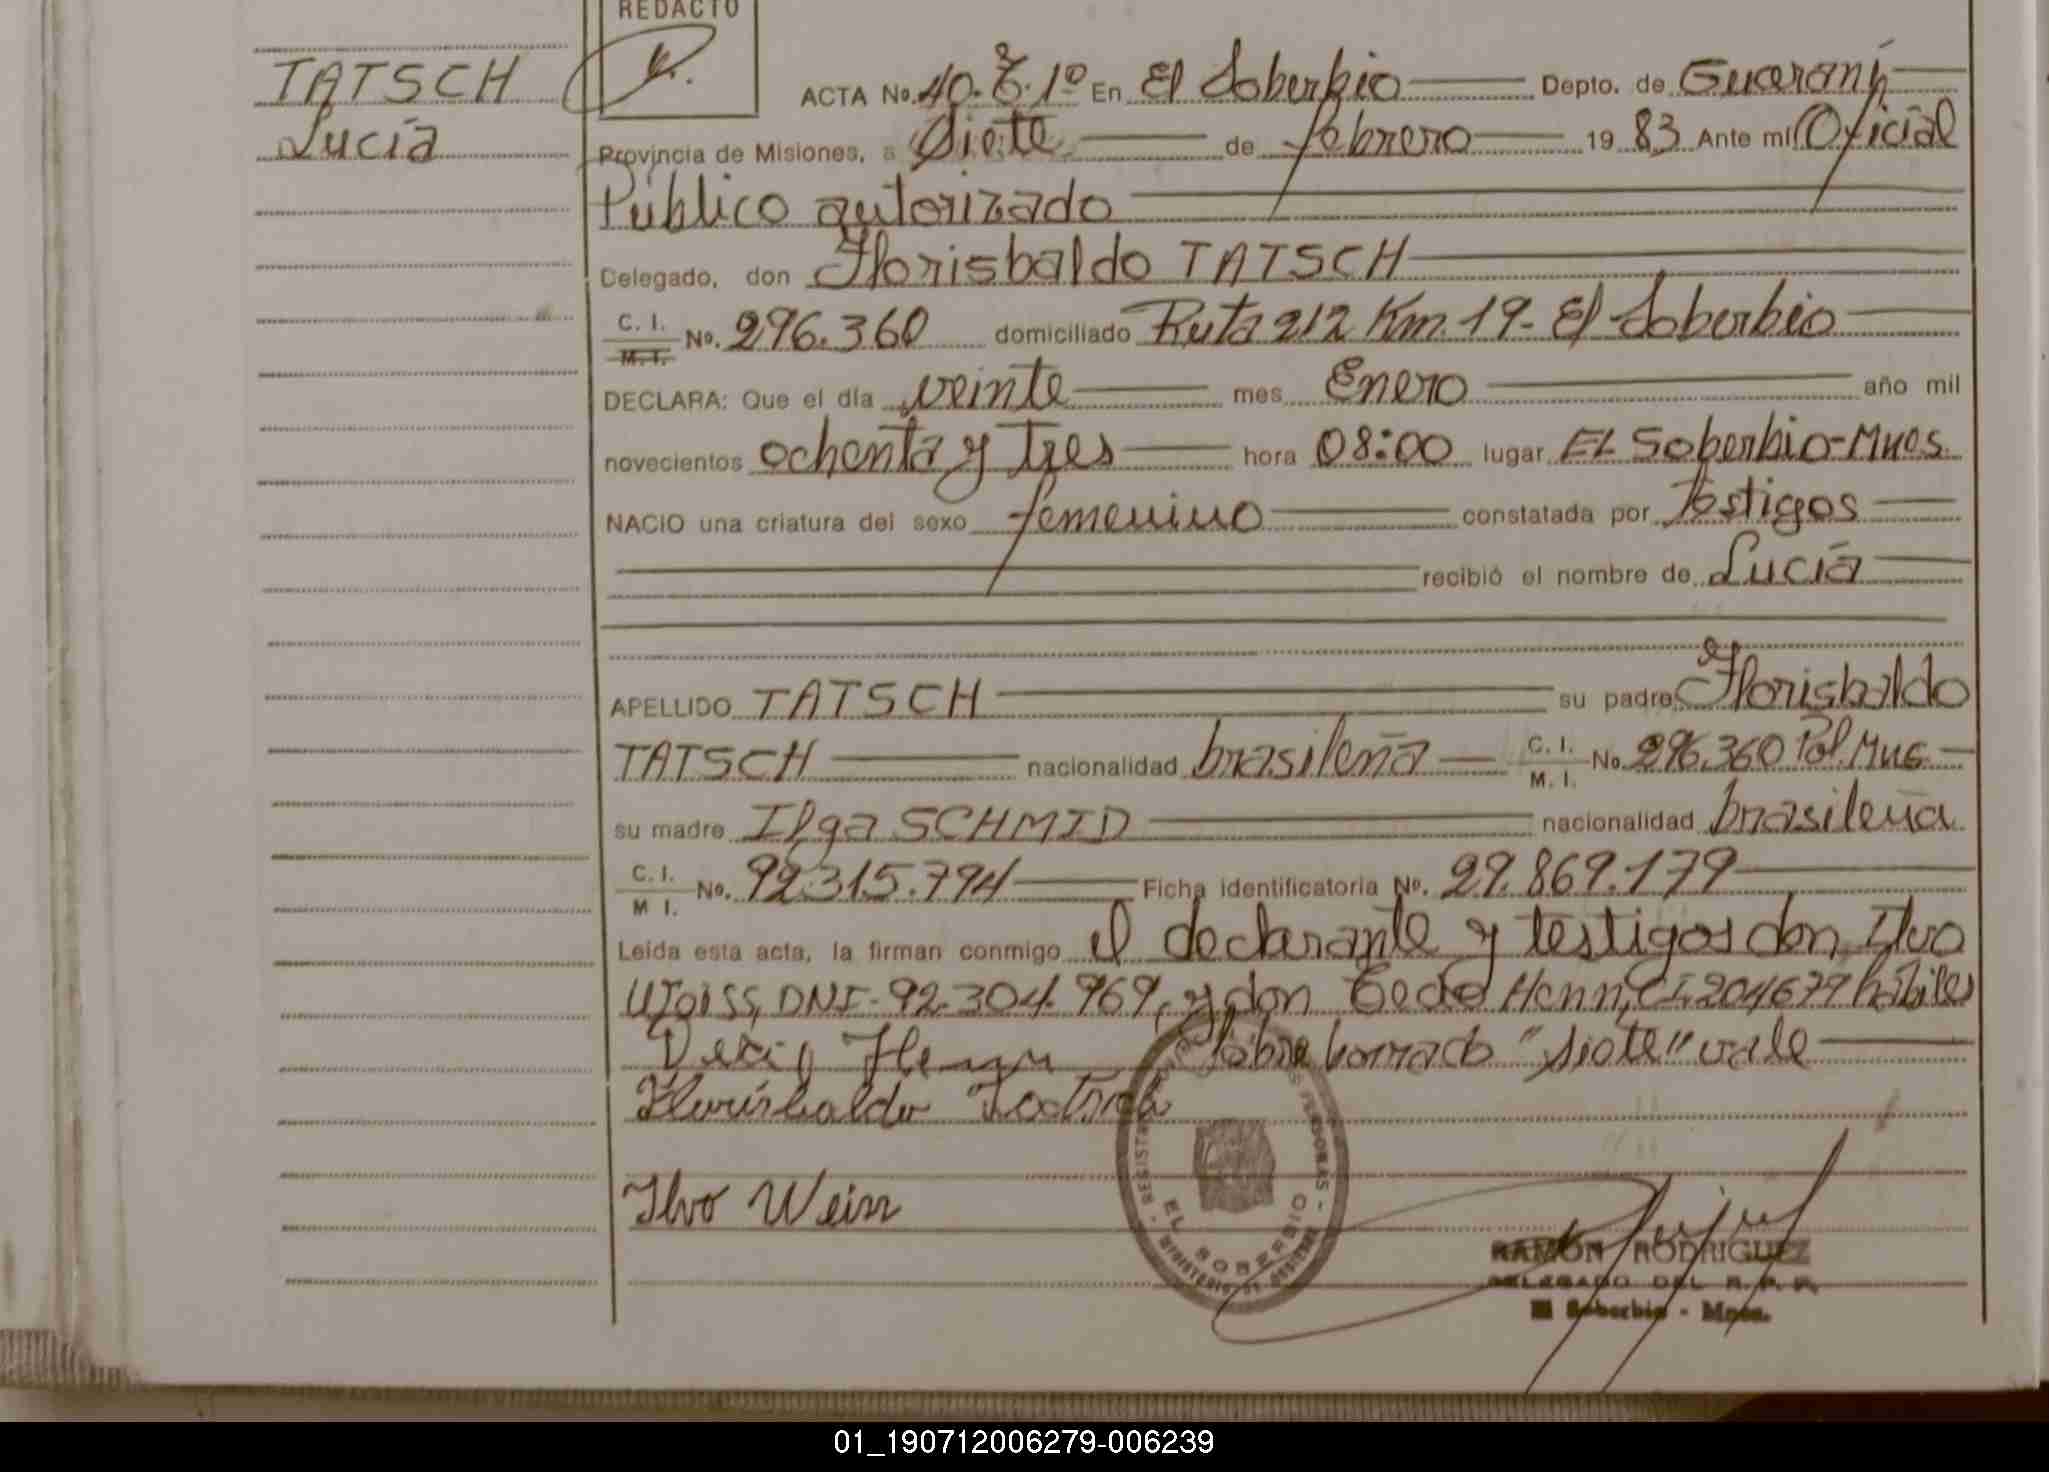 REDACTO
TATSCH
Lucía
ACTA No. 40. T. 1º En El Soberbio Depto. de Guaraní
Provincia de Misiones, a Siete de febrero 1983 Ante mí Oficial
Público autorizado
Delegado, don Florisbaldo TATSCH
C. I. M. I. No. 296.360 domiciliado Ruta 212 Km. 19- El Soberbio
DECLARA: Que el día veinte mes Enero año mil
novecientos ochenta y Tres hora 08:00 lugar EL Soberbio-Mnes.
NACIO una criatura del sexo femenino constatada por Testigos
recibió el nombre de Lucía
APELLIDO TATSCH su padre Florisbaldo
TATSCH nacionalidad brasileña C. I. M. I. No. 296.360 Pol. Mns.
su madre Ilga SCHMID nacionalidad brasileña
C. I. M I. No. 92.315.794 Ficha identificatoria No. 29.869.179
Leída esta acta, la firman conmigo el declarante y testigos don Ilvo
Weiss, DNI- 92.304.969, y don Henn, CI. 204679 hábiles
Henn Sobre borrado "Siete" vale
Florisbaldo Tatsch
Ilvo Weiss
EL SOBERBIO
RAMON RODRIGUEZ
DELEGADO DEL R. P. P.
El Soberbio - Mnes.
01_190712006279-006239